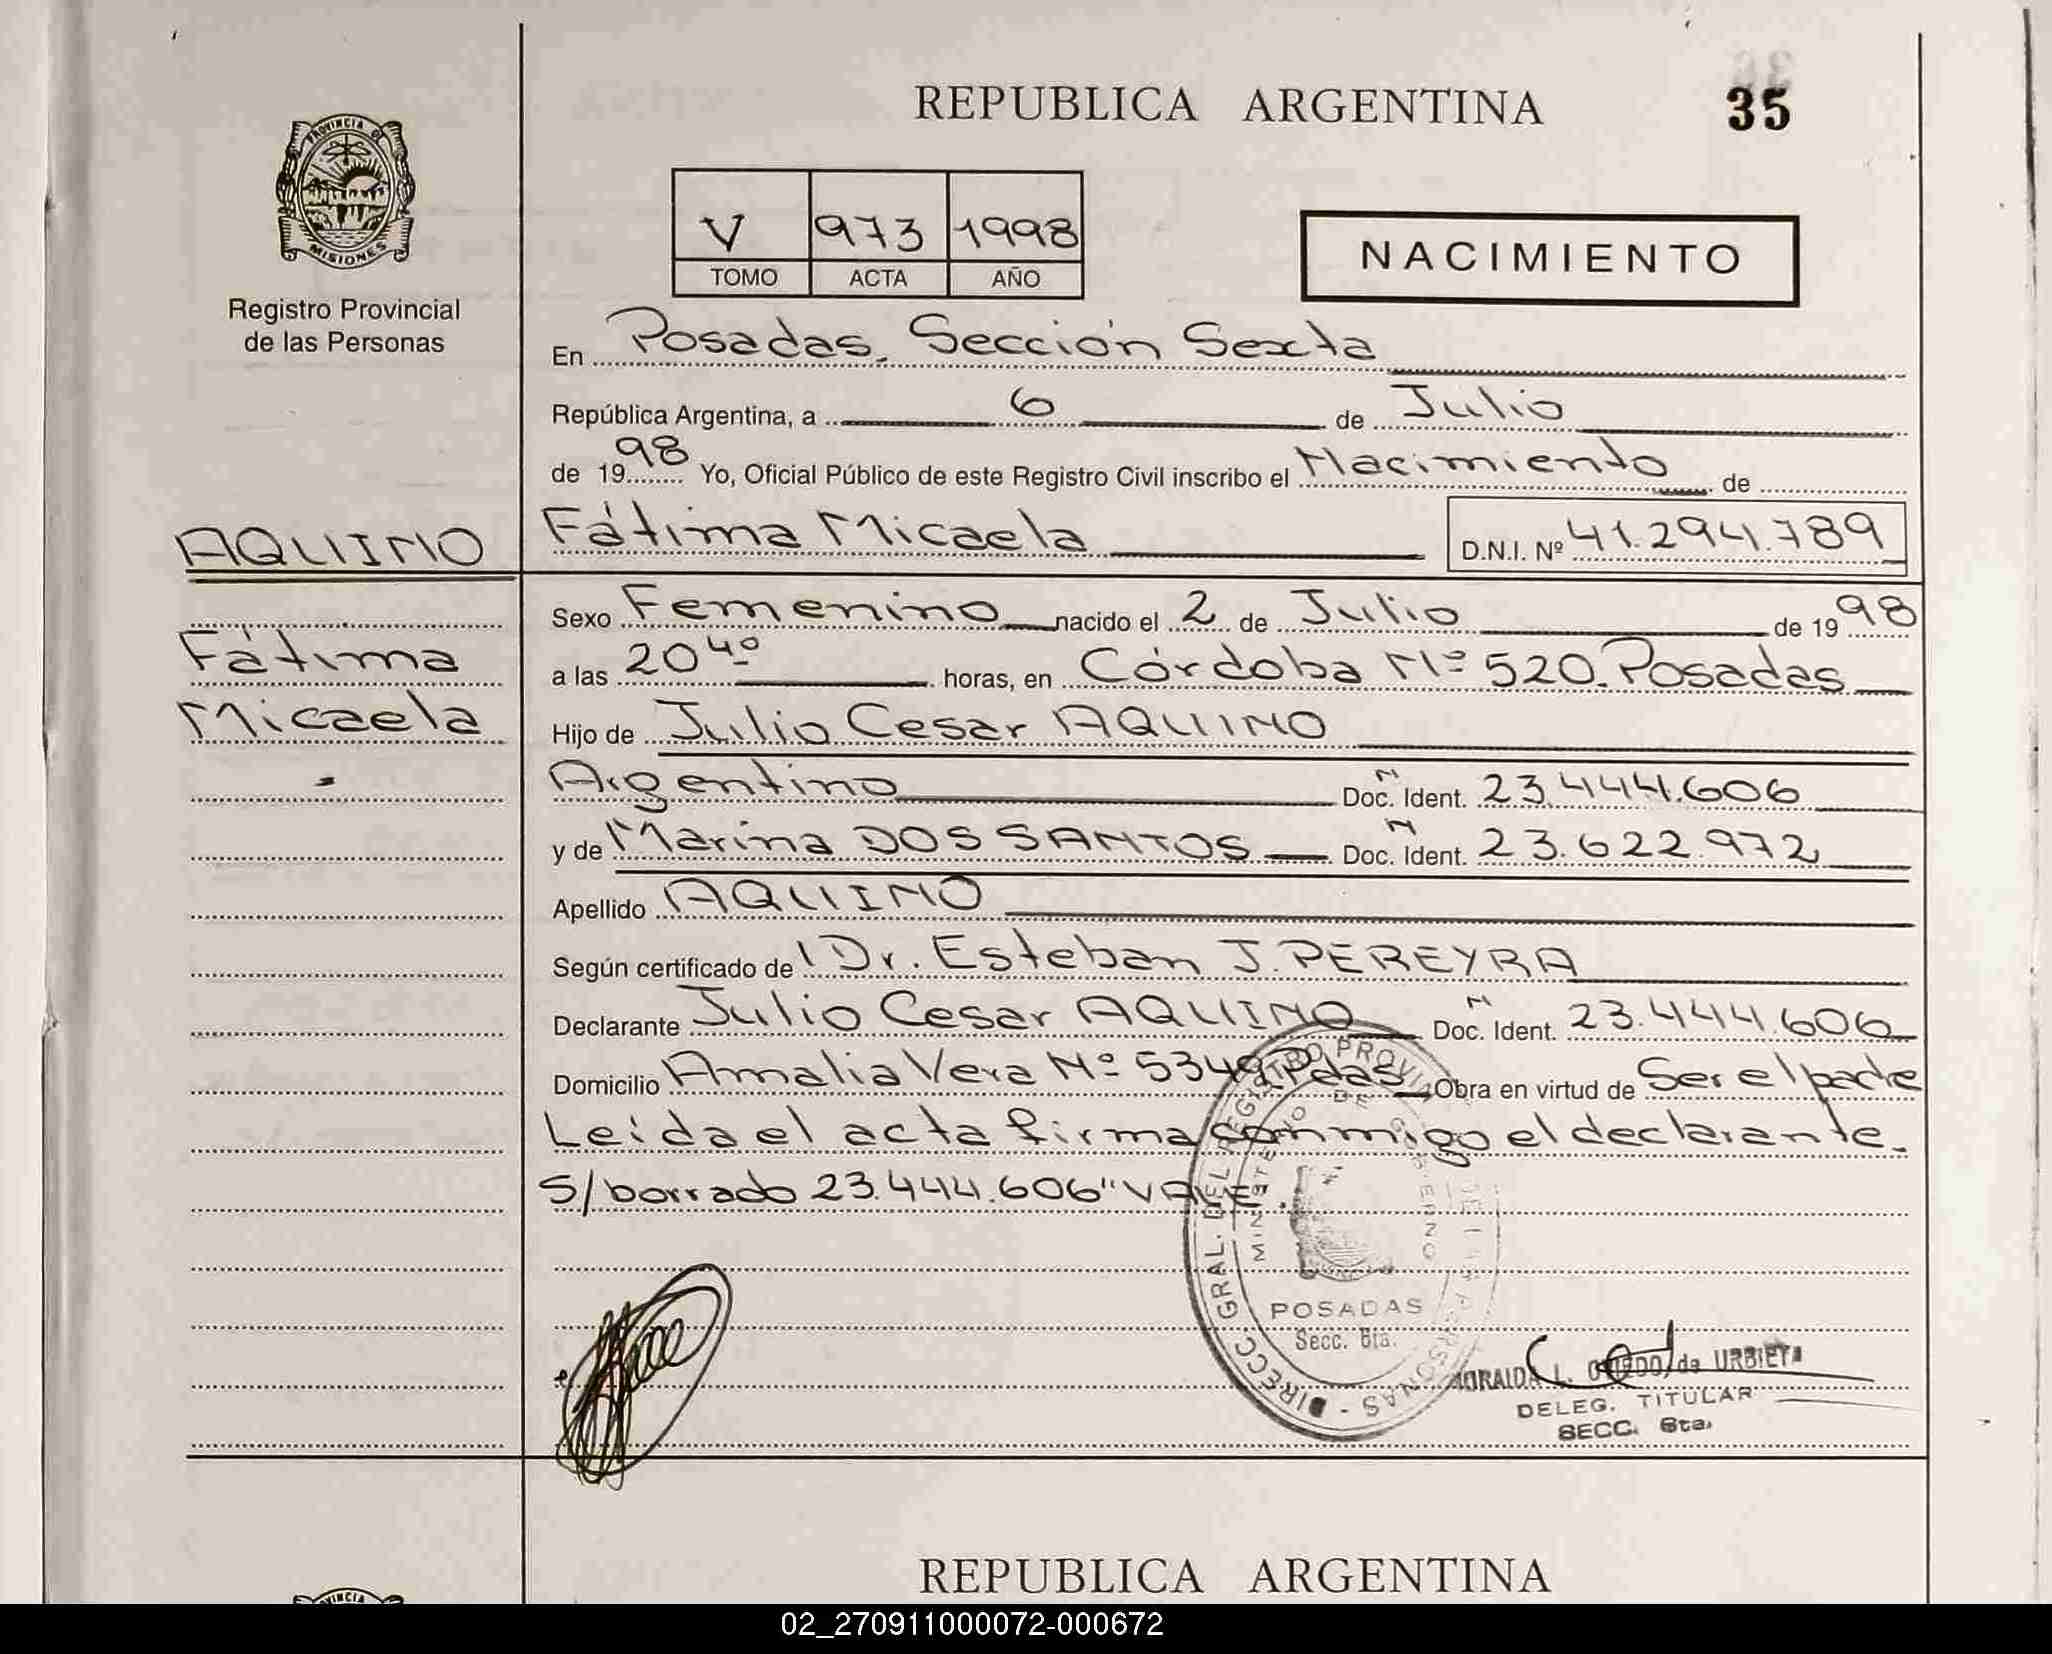 REPUBLICA ARGENTINA
35
PROVINCIA DE
MISIONES
Registro Provincial
de las Personas
V 973 1998
TOMO ACTA AÑO
NACIMIENTO
En Posadas, Sección Sexta
República Argentina, a 6 de Julio
de 1998 Yo, Oficial Público de este Registro Civil inscribo el Nacimiento de
AQUINO
Fátima Micaela D.N.I. Nº 41.294.789
Fátima
Micaela
Sexo Femenino nacido el 2 de Julio de 1998
a las 20 40 horas, en Córdoba Nº 520. Posadas
Hijo de Julio Cesar AQUINO
Argentino Doc. Ident. 23.444.606
y de Marina DOS SANTOS Doc. Ident. 23.622.972
Apellido AQUINO
Según certificado de Dr. Esteban J. PEREYRA
Declarante Julio Cesar AQUINO Doc. Ident. 23.444.606
Domicilio Amalia Vera Nº 5349 Pdas Obra en virtud de Ser el padre
Leida el acta firma conmigo el declarante.
S/borrado 23.444.606 "VALE".
DIRECC. GRAL. DEL REGISTRO PROVINCIAL DE LAS PERSONAS
MINISTERIO DE GOBIERNO
POSADAS
Secc. 6ta.
L. OVIEDO de URBIETA
DELEG. TITULAR
SECC. 6ta.
REPUBLICA ARGENTINA
02_270911000072-000672